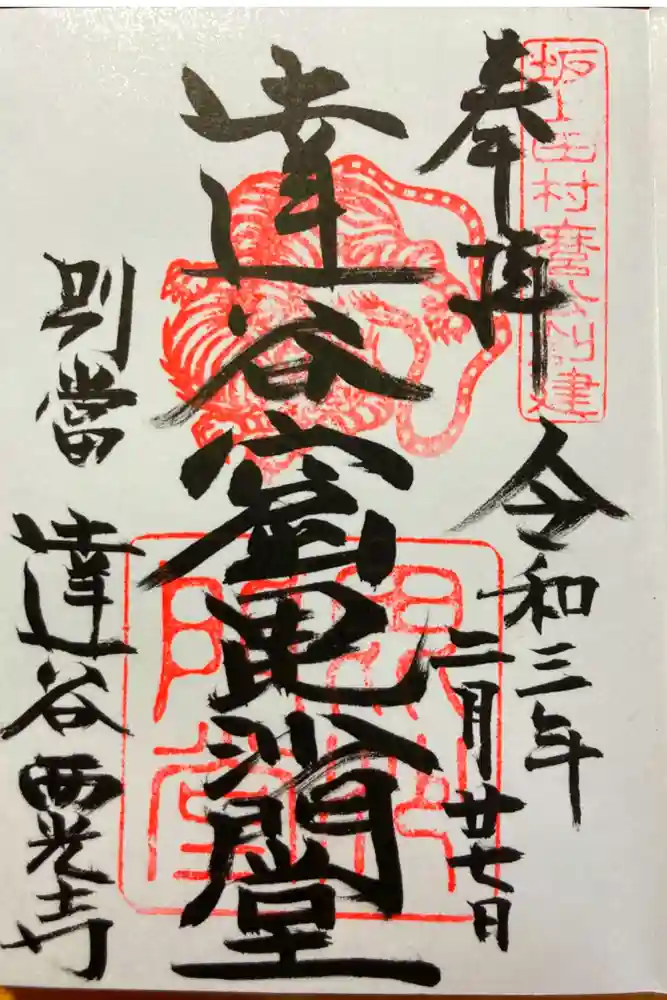 坂上田村麿公創建
奉拝
令和三年
二月廿七日
達谷窟毘沙門堂
毘沙
門堂
別當
達谷西光寺